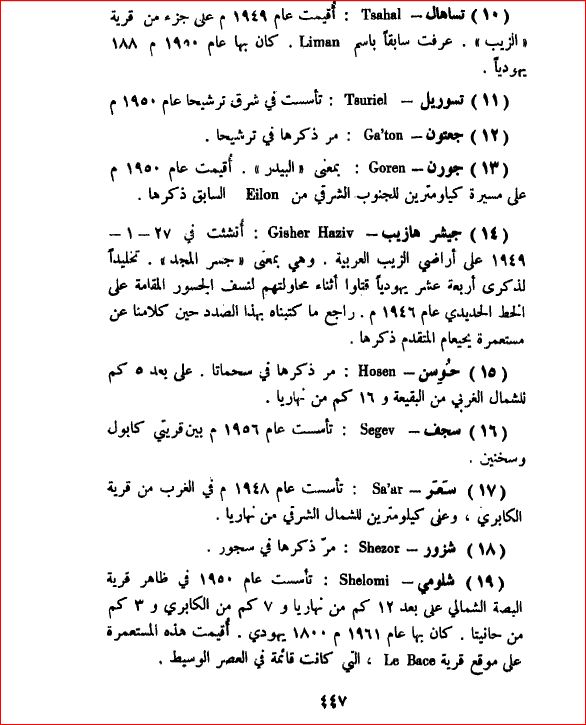 (١٠) تساهال – Tsahal : أقيمت عام ١٩٤٩ م على جزء من قرية
« الزيب » . عرفت سابقاً باسم Liman . كان بها عام ١٩٥٠ م ١٨٨
يهودياً .
(١١) تسوريل – Tsuriel : تأسست في شرق ترشيحا عام ١٩٥٠ م
(١٢) جعتون – Ga'ton : مر ذكرها في ترشيحا .
(١٣) جورن – Goren : بمعنى « البيدر » . أُقيمت عام ١٩٥٠ م
على مسيرة كيلومترين للجنوب الشرقي من Eilon السابق ذكرها .
(١٤) جيشر هازيب – Gisher Haziv : أُنشئت في ٢٧ – ١ –
١٩٤٩ على أراضي الزيب العربية . وهي بمعنى « جسر المجد » . تخليداً
لذكرى أربعة عشر يهودياً قتلوا أثناء محاولتهم لنسف الجسور المقامة على
الخط الحديدي عام ١٩٤٦ م . راجع ما كتبناه بهذا الصدد حين كلامنا عن
مستعمرة يحيعام المتقدم ذكرها .
(١٥) حُوسن – Hosen : مر ذكرها في سحماتا . على بعد ٥ كم
للشمال الغربي من البقيعة و ١٦ كم من نهاريا .
(١٦) سجف – Segev : تأسست عام ١٩٥٦ م بين قريتي كابول
وسخنين .
(١٧) سَعَر – Sa'ar : تأسست عام ١٩٤٨ م في الغرب من قرية
الكابري ، وعلى كيلومترين للشمال الشرقي من نهاريا .
(١٨) شزور – Shezor : مرّ ذكرها في سجور .
(١٩) شلومي – Shelomi : تأسست عام ١٩٥٠ في ظاهر قرية
البصة الشمالي على بعد ١٢ كم من نهاريا و ٧ كم من الكابري و ٣ كم
من حانيتا . كان بها عام ١٩٦١ م ١٨٠٠ يهودي . أُقيمت هذه المستعمرة
على موقع قرية Le Bace ، التي كانت قائمة في العصر الوسيط .
٤٤٧